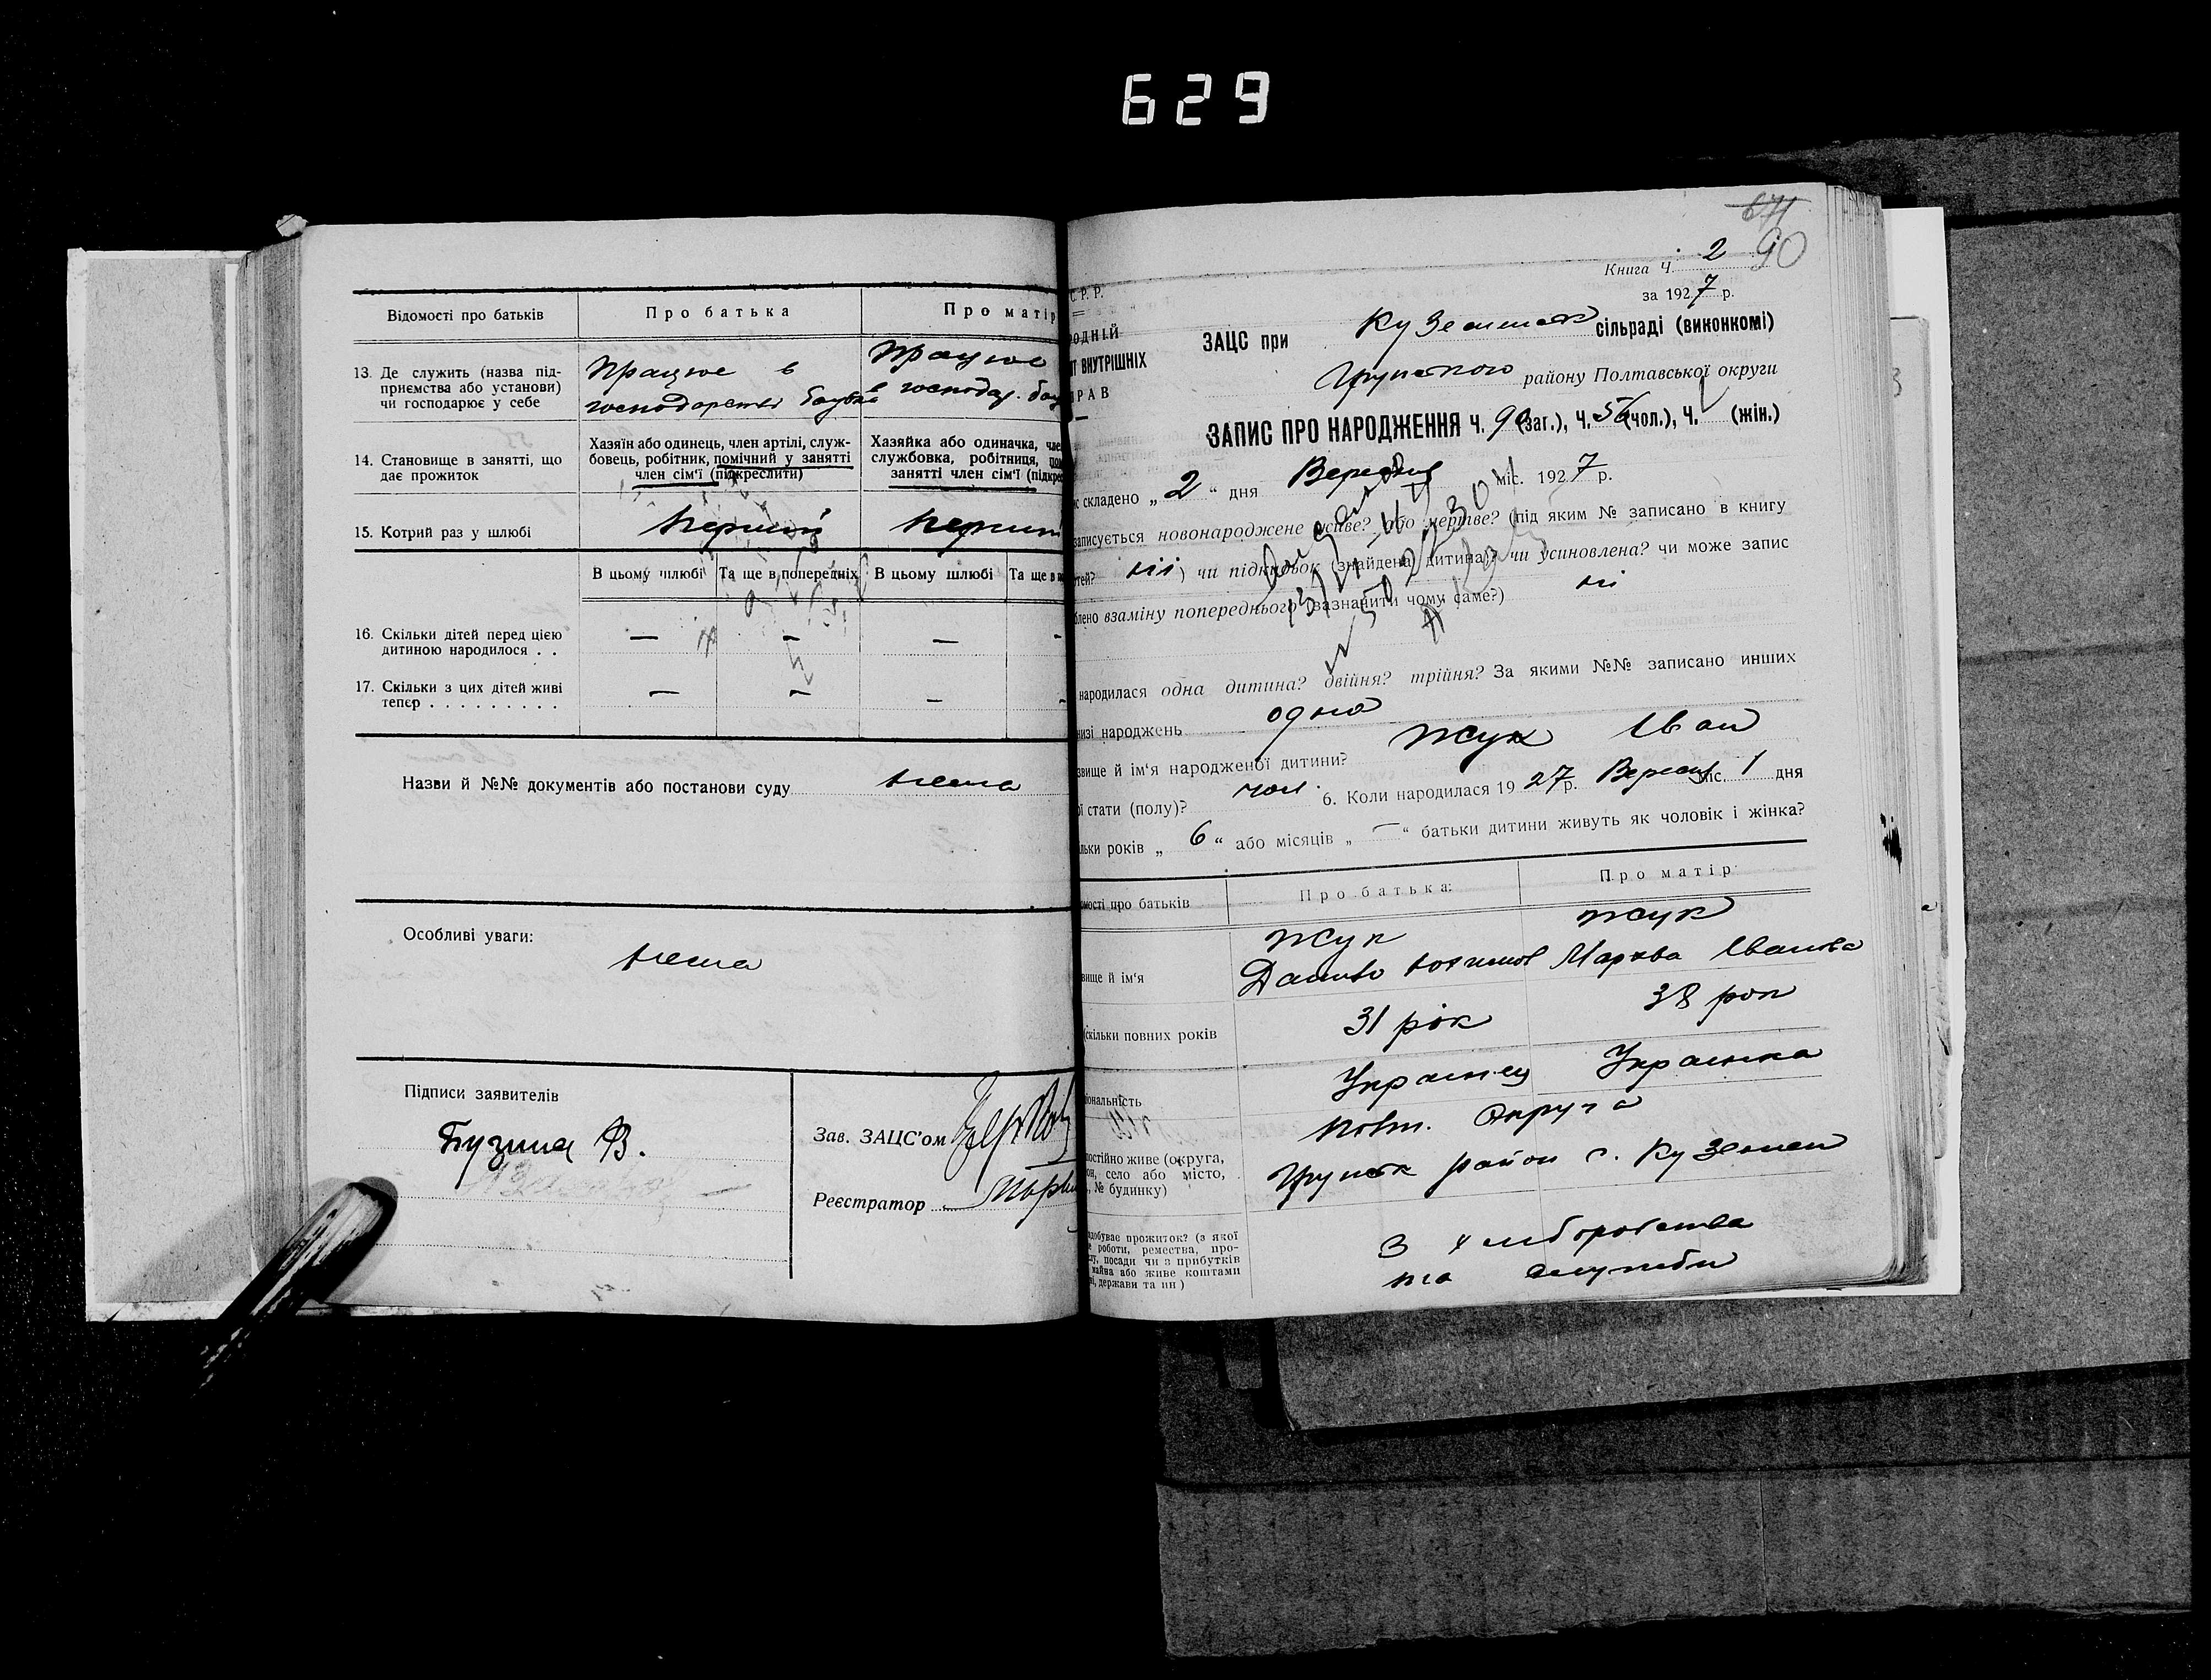 629
Відомості про батьків
Про батька
Про матір
13. Де служить (назва під-
приємства або установи)
чи господарює у себе
Працює в
господарстві батька
Працює
в господар. бать
14. Становище в занятті, що
дає прожиток
Хазяїн або одинець, член артілі, служ-
бовець, робітник, помічний у занятті
член сім'ї (підкреслити)
Хазяйка або одиначка, чле
службовка, робітниця, пом
занятті член сім'ї (підкре
15. Котрий раз у шлюбі
перший
перший
В цьому шлюбі
Та ще в попередніх
В цьому шлюбі
Та ще в по
16. Скільки дітей перед цією
дитиною народилося . .
— — — -
17. Скільки з цих дітей живі
тепер . . . . . . . . .
— — — -
Назви й №№ документів або постанови суду нема
Особливі уваги:
нема
Підписи заявителів
Бузина В.
Зав. ЗАЦС'ом
Реєстратор
671
90
Книга Ч. 2
за 1927 р.
С. Р. Р.
РОДНІЙ
Т ВНУТРІШНІХ
ПРАВ
ЗАЦС при Куземинск сільраді (виконкомі)
Грунського району Полтавської округи
ЗАПИС ПРО НАРОДЖЕННЯ ч. 90 (заг.), ч. 56 (чол.), ч. (жін.)
с складено „ 2 “ дня Вересня міс. 1927 р.
записується новонароджене живе? або мертве? (під яким № записано в книгу
тей? ні) чи підкидьок (знайдена) дитина? чи усиновлена? чи може запис
блено взаміну попереднього (зазначити чому саме?) ні
народилася одна дитина? двійня? трійня? За якими №№ записано инших
низі народжень одна
звище й ім'я народженої дитини? Жук Іван
ої стати (полу)? чол. 6. Коли народилася 1927 р. Вересня міс. 1 дня
льки років „ 6 “ або місяців „ — “ батьки дитини живуть як чоловік і жінка?
омості про батьків
Про батька:
Про матір
вище й ім'я
Жук
Данило
Жук
Марфа Іванова
скільки повних років
31 рік
38 рок
іональність
Українец
Українка
постійно живе (округа,
он, село або місто,
, № будинку)
Полт. Округа
Грунськ район с. Куземен
здобуває прожиток? (з якої
е роботи, ремества, про-
су, посади чи з прибутків
майна або живе коштами
ні, держави та ин )
З хліборобства
та служби